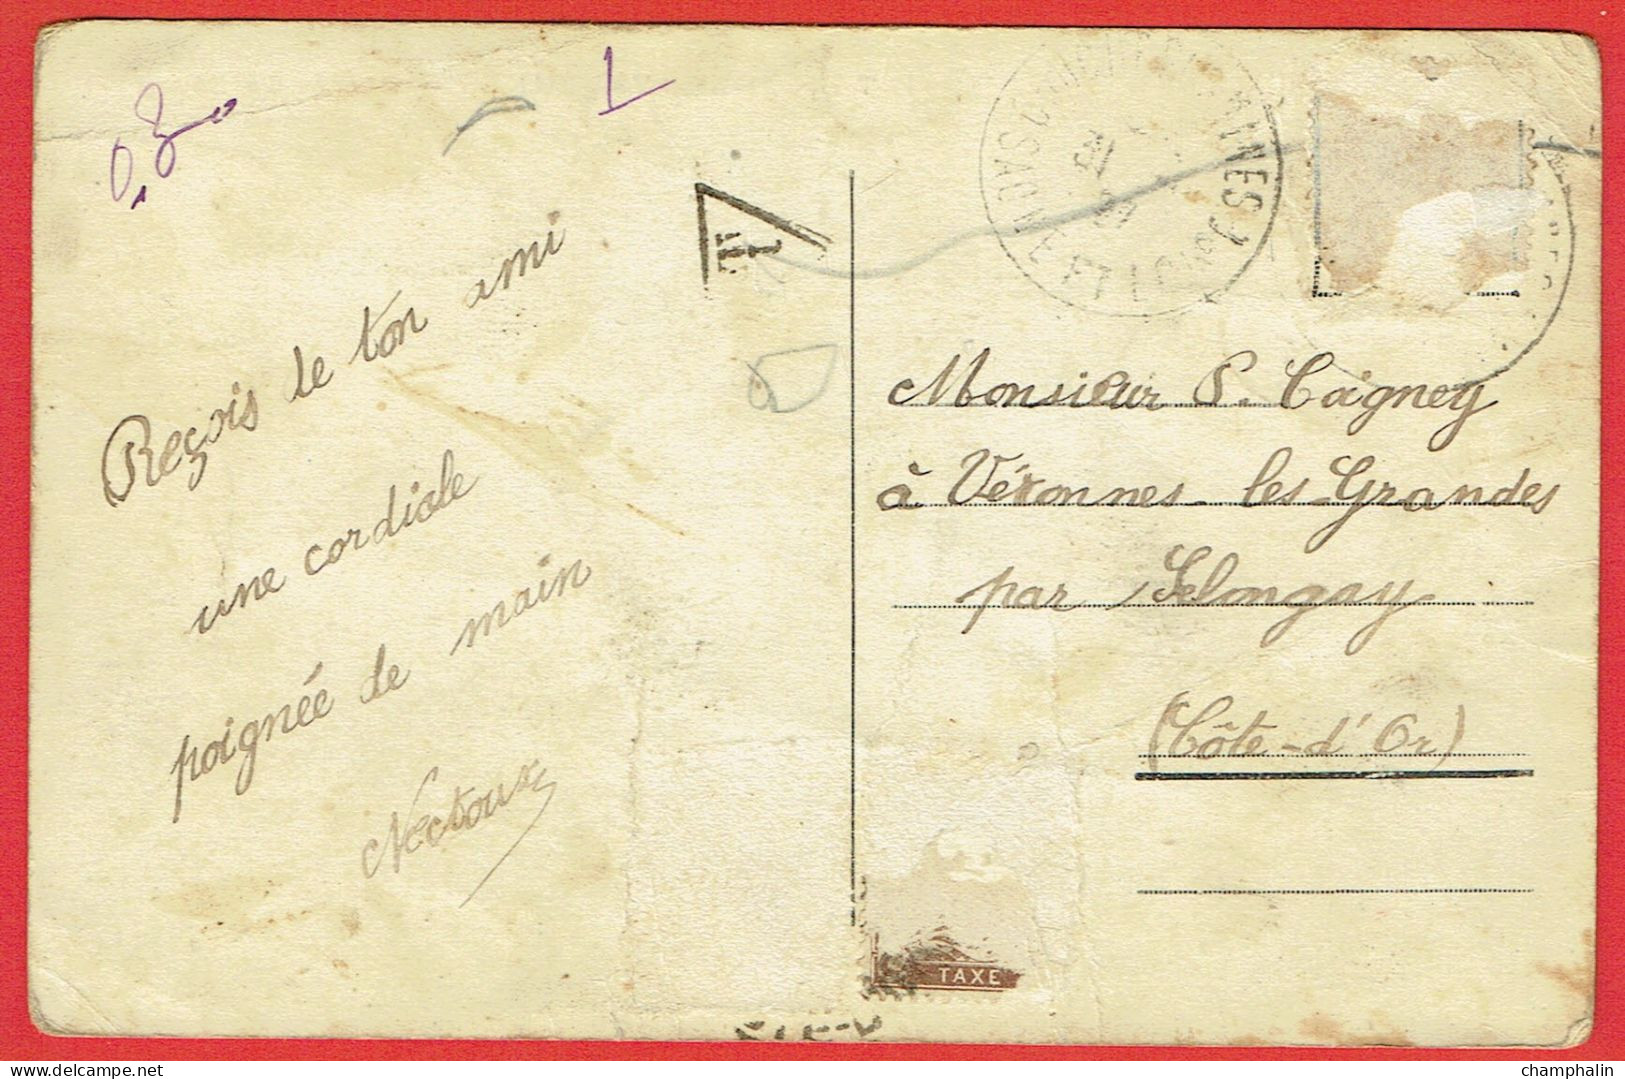 0,30
1
T
Reçois de ton ami
une cordiale
poignée de main
Nectoux
Monsieur P. Coigney
à Véronnes-les-Grandes
par Selongey
(Côte-d'Or)
TAXE
champhalin